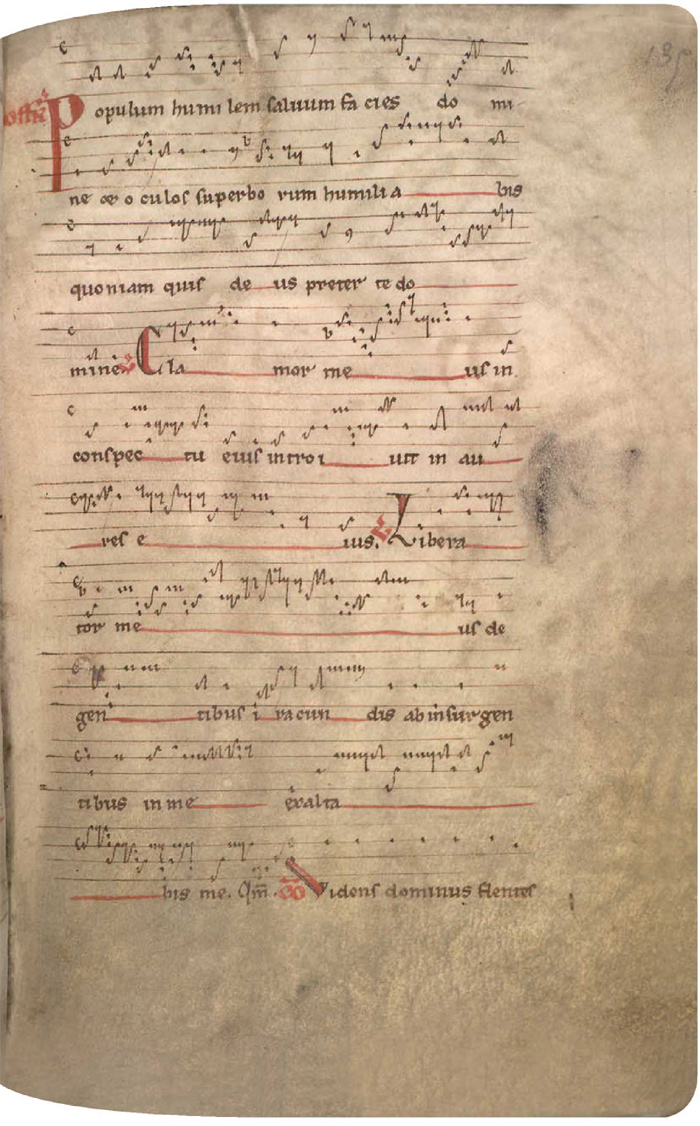 135
offm Populum humi lem saluum fa cies do mi
ne et o culos superbo rum humilia bis
quoniam quis de us preter te do
mine. V Cla mor me us in
conspec tu eius introi uit in au
res e ius. V Libera
tor me us de
gen tibus i racun dis ab insurgen
tibus in me exalta
bis me. Qm̄. Cō Videns dominus flentes